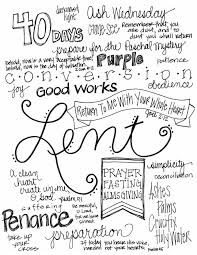 40
DAYS
Ash Wednesday
Remember that you
are dust, and to
dust you shall return
prepare for the Paschal mystery
Behold, now is a very acceptable time;
behold, now is the day of salvation
Purple
patience
conversion
joy
Good Works
obedience
Return To Me With Your Whole Heart
Lent
A clean
heart
create in me
O God
PRAYER
FASTING
ALMSGIVING
simplicity
reconciliation
Ashes
Palms
Crucifix
Holy Water
Penance
take up
your
cross
preparation
If today you hear his voice,
harden not your hearts